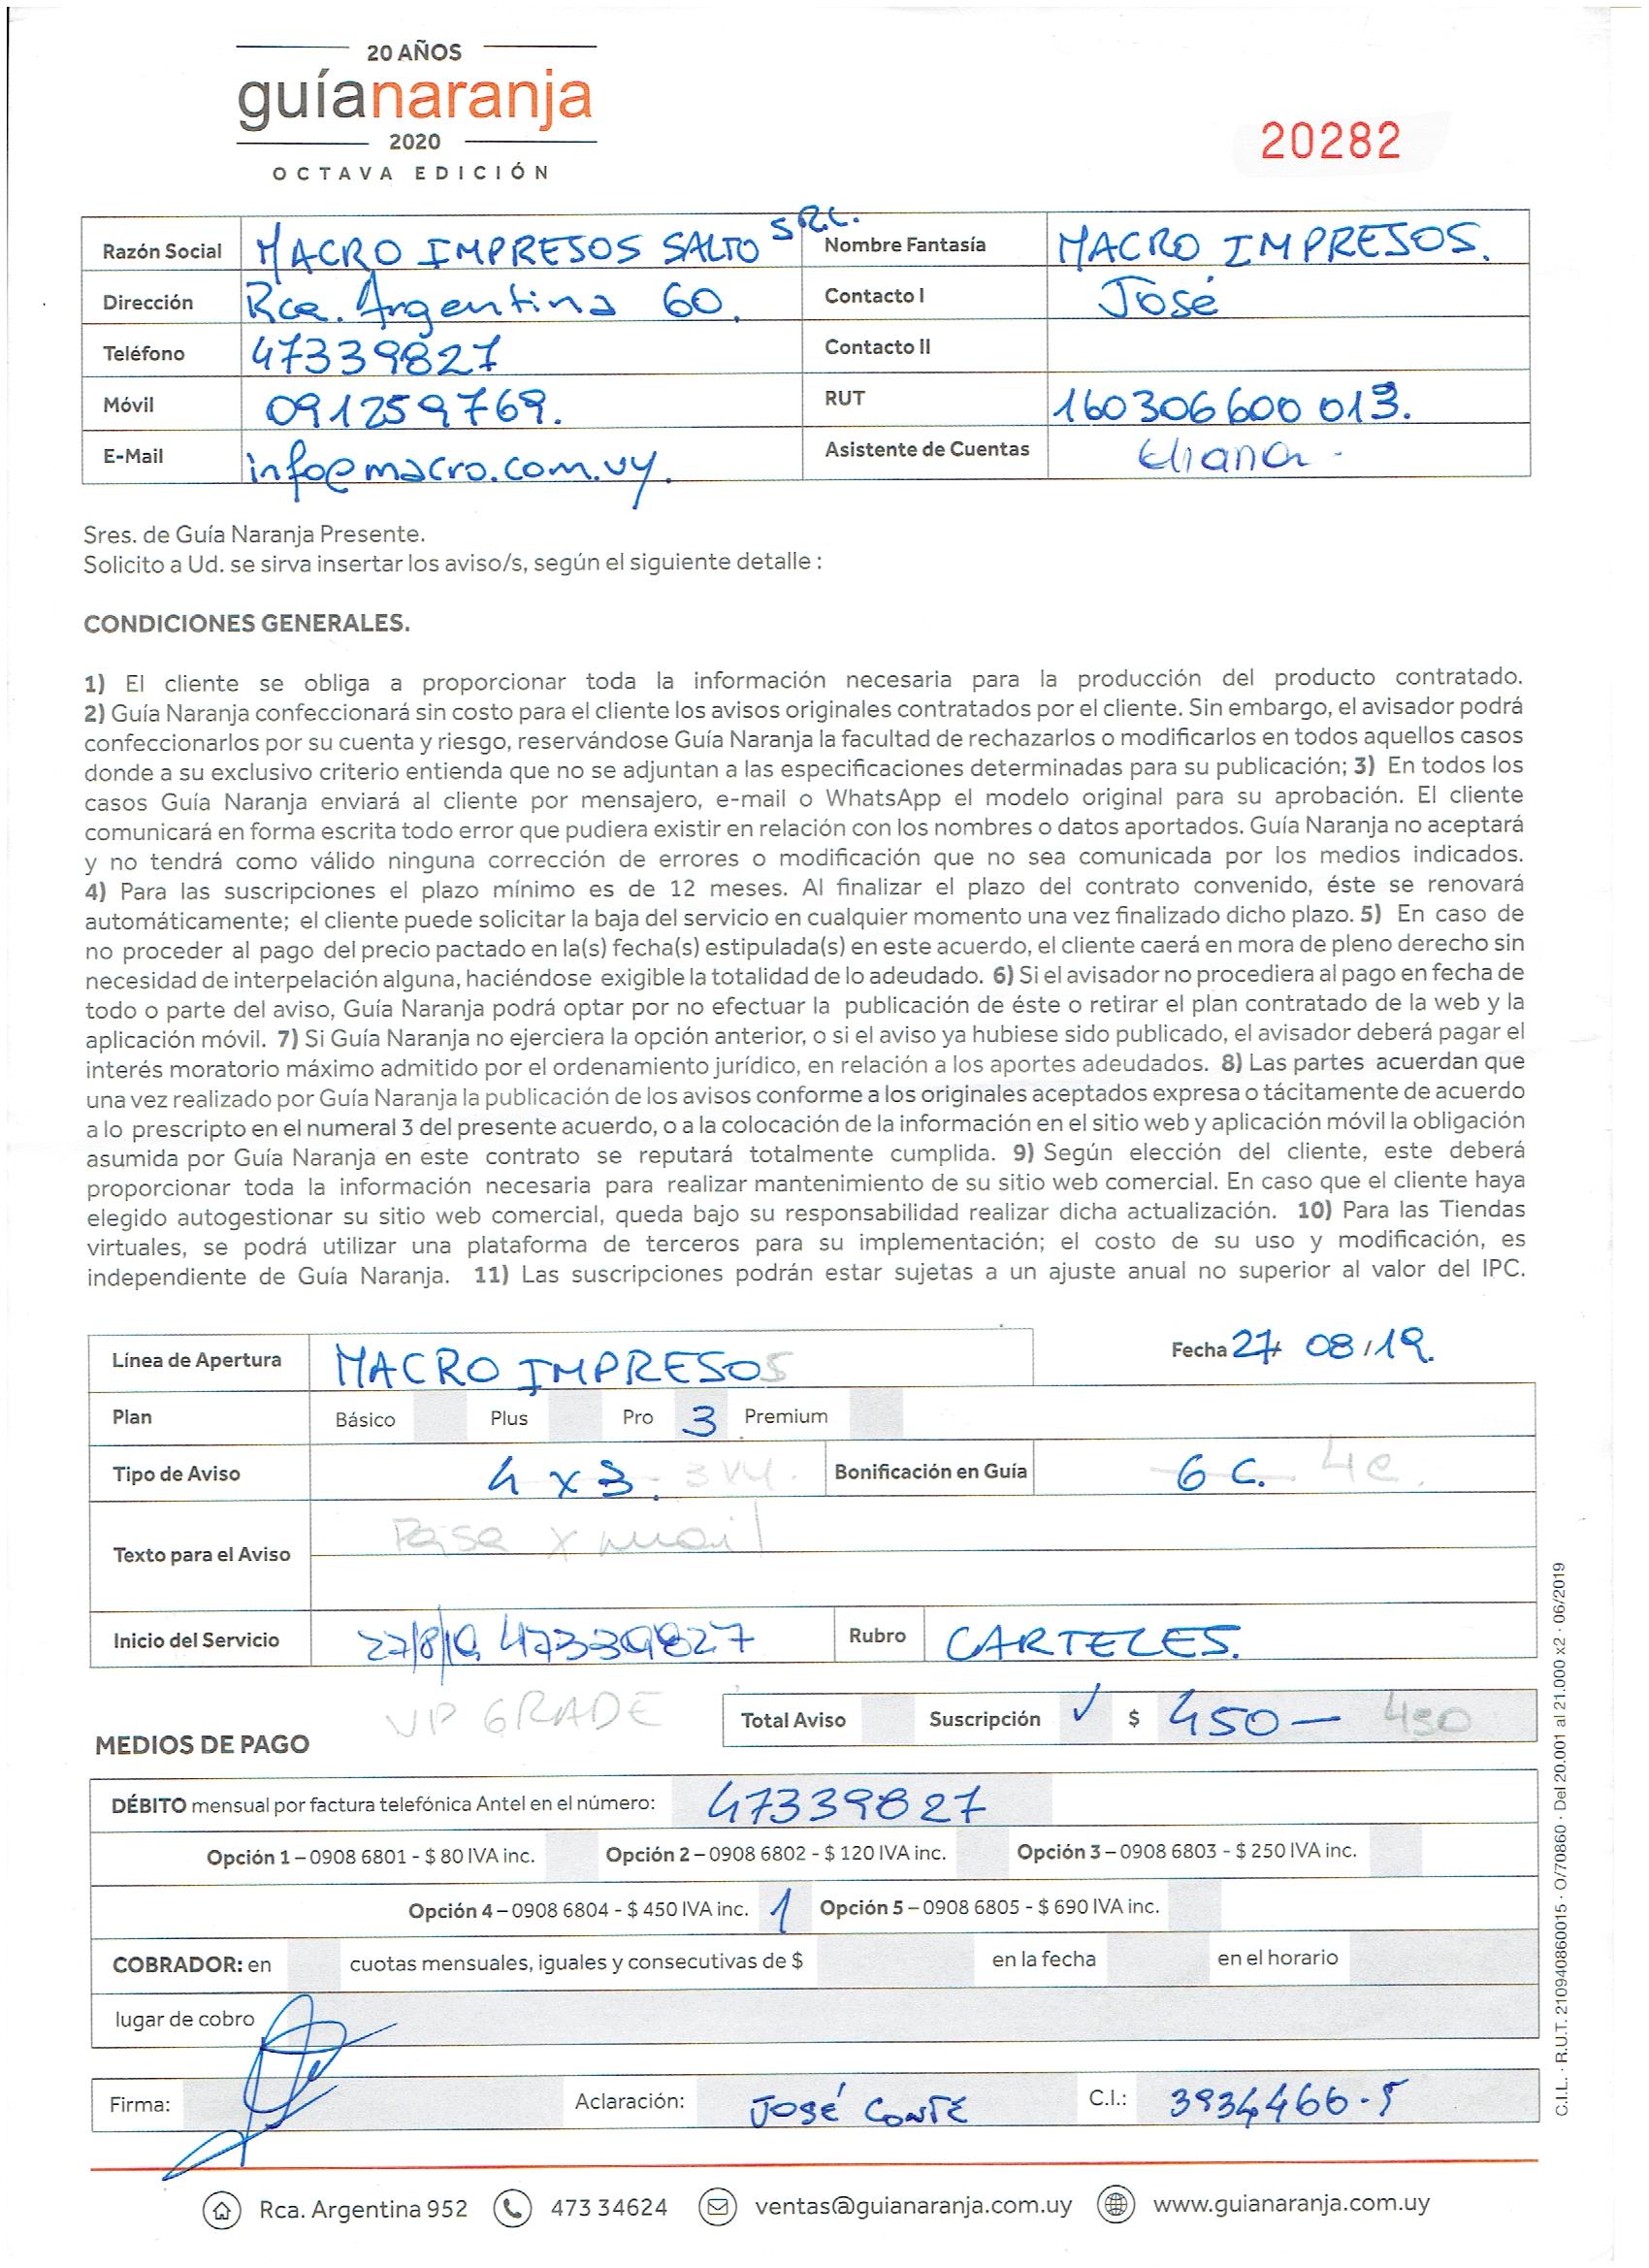 20 AÑOS
guíanaranja
2020
OCTAVA EDICIÓN
20282
Razón Social MACRO IMPRESOS SALTO S.R.L. Nombre Fantasía MACRO IMPRESOS.
Dirección Rca. Argentina 60. Contacto I José
Teléfono 47339827 Contacto II
Móvil 091259769. RUT 160306600013.
E-Mail info@macro.com.uy. Asistente de Cuentas Eliana.
Sres. de Guía Naranja Presente.
Solicito a Ud. se sirva insertar los aviso/s, según el siguiente detalle :
CONDICIONES GENERALES.
1) El cliente se obliga a proporcionar toda la información necesaria para la producción del producto contratado.
2) Guía Naranja confeccionará sin costo para el cliente los avisos originales contratados por el cliente. Sin embargo, el avisador podrá
confeccionarlos por su cuenta y riesgo, reservándose Guía Naranja la facultad de rechazarlos o modificarlos en todos aquellos casos
donde a su exclusivo criterio entienda que no se adjuntan a las especificaciones determinadas para su publicación; 3) En todos los
casos Guía Naranja enviará al cliente por mensajero, e-mail o WhatsApp el modelo original para su aprobación. El cliente
comunicará en forma escrita todo error que pudiera existir en relación con los nombres o datos aportados. Guía Naranja no aceptará
y no tendrá como válido ninguna corrección de errores o modificación que no sea comunicada por los medios indicados.
4) Para las suscripciones el plazo mínimo es de 12 meses. Al finalizar el plazo del contrato convenido, éste se renovará
automáticamente; el cliente puede solicitar la baja del servicio en cualquier momento una vez finalizado dicho plazo. 5) En caso de
no proceder al pago del precio pactado en la(s) fecha(s) estipulada(s) en este acuerdo, el cliente caerá en mora de pleno derecho sin
necesidad de interpelación alguna, haciéndose exigible la totalidad de lo adeudado. 6) Si el avisador no procediera al pago en fecha de
todo o parte del aviso, Guía Naranja podrá optar por no efectuar la publicación de éste o retirar el plan contratado de la web y la
aplicación móvil. 7) Si Guía Naranja no ejerciera la opción anterior, o si el aviso ya hubiese sido publicado, el avisador deberá pagar el
interés moratorio máximo admitido por el ordenamiento jurídico, en relación a los aportes adeudados. 8) Las partes acuerdan que
una vez realizado por Guía Naranja la publicación de los avisos conforme a los originales aceptados expresa o tácitamente de acuerdo
a lo prescripto en el numeral 3 del presente acuerdo, o a la colocación de la información en el sitio web y aplicación móvil la obligación
asumida por Guía Naranja en este contrato se reputará totalmente cumplida. 9) Según elección del cliente, este deberá
proporcionar toda la información necesaria para realizar mantenimiento de su sitio web comercial. En caso que el cliente haya
elegido autogestionar su sitio web comercial, queda bajo su responsabilidad realizar dicha actualización. 10) Para las Tiendas
virtuales, se podrá utilizar una plataforma de terceros para su implementación; el costo de su uso y modificación, es
independiente de Guía Naranja. 11) Las suscripciones podrán estar sujetas a un ajuste anual no superior al valor del IPC.
Línea de Apertura MACRO IMPRESOS Fecha 27/ 08/19.
Plan Básico Plus Pro 3 Premium
Tipo de Aviso 4 x 3. Bonificación en Guía 6 C. 4c.
Texto para el Aviso Pasa x mail
Inicio del Servicio 27/8/19 47339827 Rubro CARTELES.
UP GRADE Total Aviso Suscripción ✓ $ 450— 450
MEDIOS DE PAGO
DÉBITO mensual por factura telefónica Antel en el número: 47339827
Opción 1 – 0908 6801 - $ 80 IVA inc. Opción 2 – 0908 6802 - $ 120 IVA inc. Opción 3 – 0908 6803 - $ 250 IVA inc.
Opción 4 – 0908 6804 - $ 450 IVA inc. 1 Opción 5 – 0908 6805 - $ 690 IVA inc.
COBRADOR: en cuotas mensuales, iguales y consecutivas de $ en la fecha en el horario
lugar de cobro
Firma: Aclaración: JOSÉ CONTE C.I.: 3934466-5
Rca. Argentina 952 473 34624 ventas@guianaranja.com.uy www.guianaranja.com.uy
C.I.L. · R.U.T. 210940860015 · O/70860 · Del 20.001 al 21.000 x2 · 06/2019